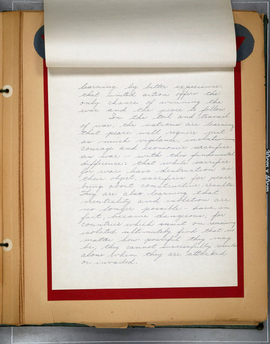 learning by bitter experience
that united action offers the
only chance of winning the
war and the peace to follow.
In the toil and travail
of war, the nations are learning
that peace will require just
as much vigilance,
courage and economic sacrifice
as war - with the fundamental
difference that while sacrifices
for war have destruction as
their object, sacrifices for peace
bring about constructive results.
They are also learning that
neutrality and isolation are
no longer possible - have in
fact become dangerous, for
countries which insist on being
isolated ultimately find that no
matter how powerful they may
be, they cannot successfully stand
alone when they are attacked
or invaded.